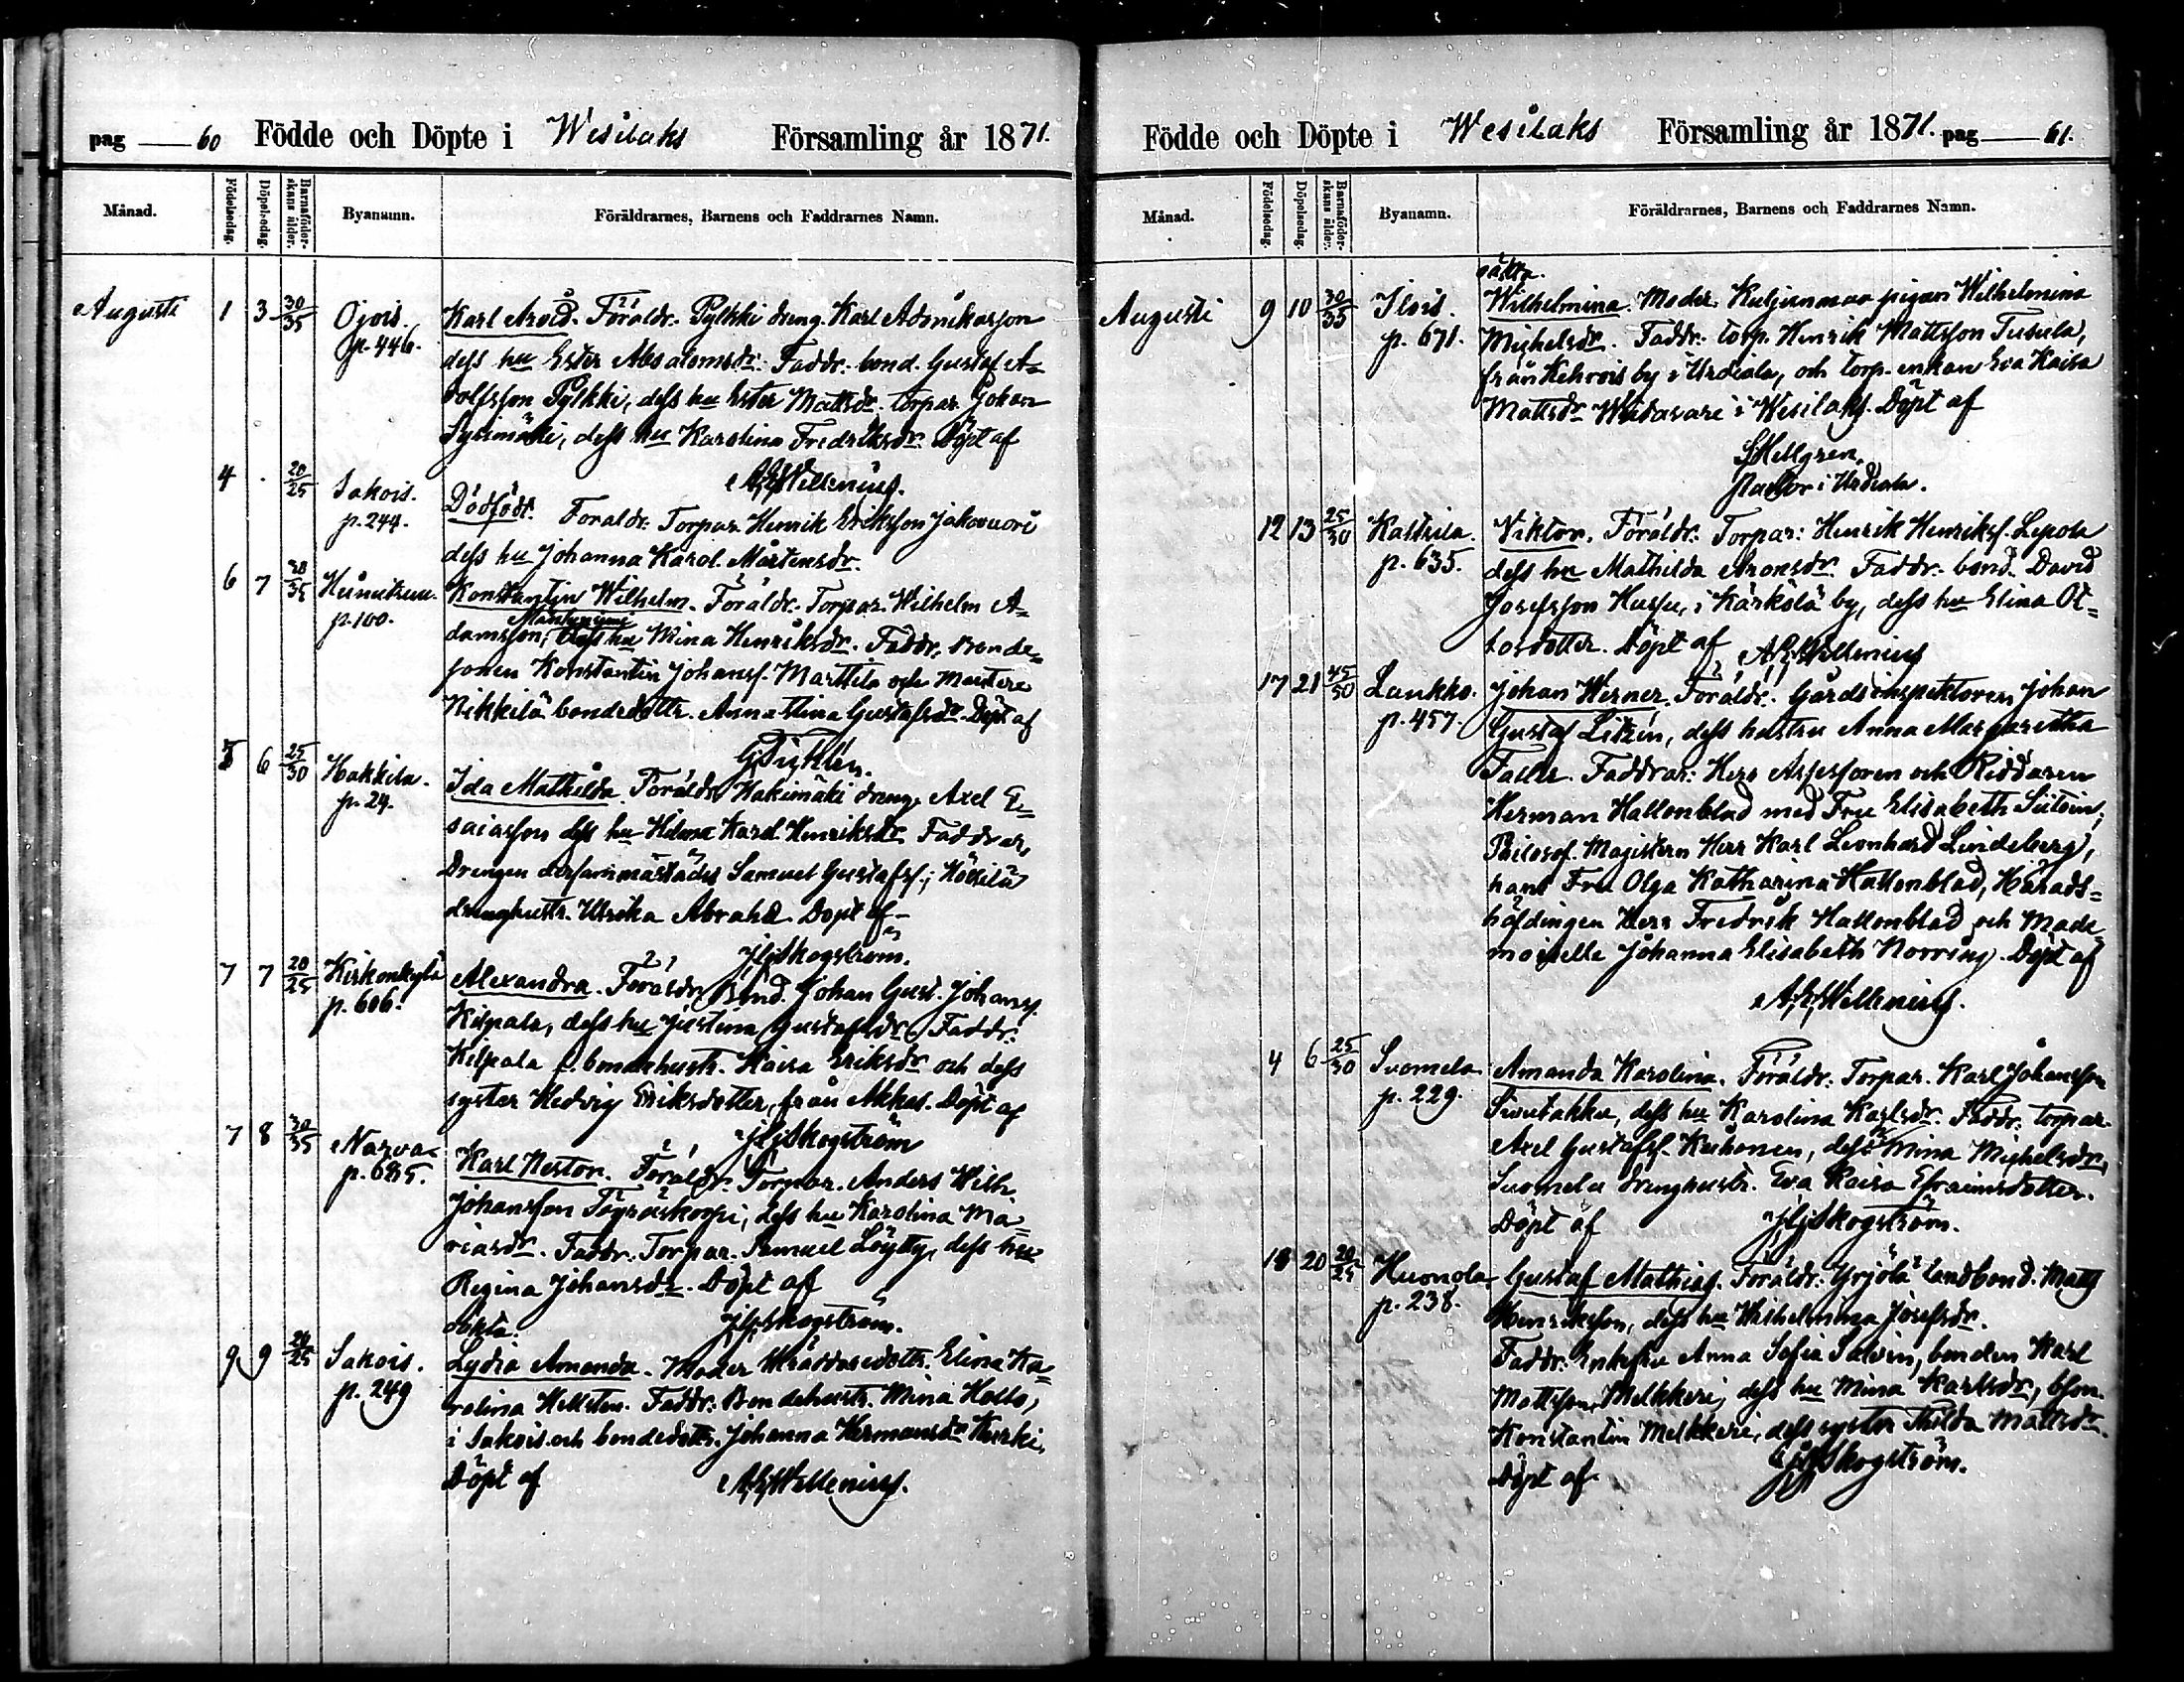 pag 60 Födde och Döpte i Wesilaks Församling år 1871.
Månad. Födelsedag. Döpelsedag. Barnaföderskans ålder. Byanamn. Föräldrarnes, Barnens och Faddrarnes Namn.
Augusti 1 3 30/35 Ojois. p. 446.
Karl Arvid. Föräldr. Pylkki dreng. Karl Adamikasson
dess hu Ester Absalomsdr. Faddr. bond. Gustaf A=
dolfsson Pylkki, dess hu Ester Mattsdr. torpar. Johan
Sysimäki, dess hu Karolina Fredriksdr. Döpt af
Wellenius.
4 . 20/25 Sakois. p. 244.
Dödfödt. Föräldr. Torpar. Henrik Eriksson Jakovuori
dess hu Johanna Karol. Mårtensdr.
6 7 30/35 p. 100.
Konstantin Wilhelm. Föräldr. Torpar. Wilhelm A=
damsson, dess hu Mina Henriksdr. Faddr. bonde=
sonen Konstantin Johanss. Marttila och
Nikkilä bondedottr. Anna Stina Gustafsdr. Döpt af
5 6 25/30 Hakkila. p. 24.
Ida Mathilda. Föräldr. Hakimäki dreng. Axel E=
saiasson dess hu Helena Karol. Henriksdr. Faddrar,
Drengen dersammastädes Samuel Gustafss.,
drenghustr. Ulrika Abrahd. Döpt af
JHjSkogström.
7 7 20/25 Kirkonkylä p. 606.
Alexandra. Föräldr. Bond. Johan Gust. Johanss.
Kilpala, dess hu Justina Gustafsdr. Faddr.
Kilpala f. bondehustr. Kaisa Eriksdr och dess
syster Hedvig Eriksdotter, från Akkas. Döpt af
JHjSkogström
7 8 30/35 Narva p. 685.
Karl Nestor. Föräldr. Torpar. Anders Wilh.
Johansson Töyräskorpi, dess hu Karolina Ma=
riasdr. Faddr. Torpar. Samuel Löytty, dess hu
Regina Johansdr. Döpt af
JHjSkogström.
oäkta.
9 9 20/25 Sakois. p. 249
Lydia Amanda. Moder Skräddaredottr. Elina Ka=
rolina Hellsten. Faddr. Bondehustr. Mina Hollo,
i Sakois och bondedottr. Johanna Hermansdr Kurki.
Döpt af Wellenius.
Födde och Döpte i Wesilaks Församling år 1871. pag 61.
Månad. Födelsedag. Döpelsedag. Barnaföderskans ålder. Byanamn. Föräldrarnes, Barnens och Faddrarnes Namn.
oäkta.
Augusti 9 10 30/35 Ilois. p. 671.
Wilhelmina. Moder. Kuljunmaa pigan Wilhelmina
Michelsdr. Faddr. torp. Henrik Mattsson Tusula,
från Kehrois by i Urdiala, och torp. enkan Eva Kaisa
Mattsdr i Wesilaks. Döpt af
Hellgren,
Pastor i Urdiala.
12 13 25/30 Kaltsila. p. 635.
Viktor. Föräldr. Torpar: Henrik Henrikss. Lepola
dess hu Mathilda Aronsdr. Faddr. bond. David
Josefsson Hussu, i Kärkölä by, dess hu Elina Ot=
tosdotter. Döpt af Wellenius
17 21 45/50 Laukko. p. 457.
Johan Werner. Föräldr. Gårdsinspektoren Johan
Gustaf Litzén, dess hustru Anna Margaretha
Faddrar: Herr Assessoren och Riddaren
Herman Hallonblad med Fru Elisabeth
Philosof. Magistern Herr Karl Leonhard Lindeberg,
hans Fru Olga Katharina Hallonblad, Härads=
höfdingen Herr Fredrik Hallonblad och Made=
moiselle Johanna Elisabeth Norring. Döpt af
Wellenius.
4 6 25/30 Suomela p. 229.
Amanda Karolina. Föräldr. Torpar. Karl Johansson
dess hu Karolina Karlsdr. Faddr. torpar.
Axel Gustafss. Kuhonen, dess hu Mina Michelsdr,
Suomela drenghustr. Eva Kaisa Efraimsdotter.
Döpt af JHjSkogström.
18 20 20/25 Huonola p. 238.
Gustaf Mathias. Föräldr. Yrjölä landbond. Matts
Henriksson, dess hu Wilhelmina Josefsdr.
Faddr. Enkefru Anna Sofia Salvin, bonden Karl
Mattsson Melkkeri, dess hu Mina Karlsdr, bson.
Konstantin Melkkeri, dess syster Thilda Mattsdr.
Döpt af JHjSkogström.